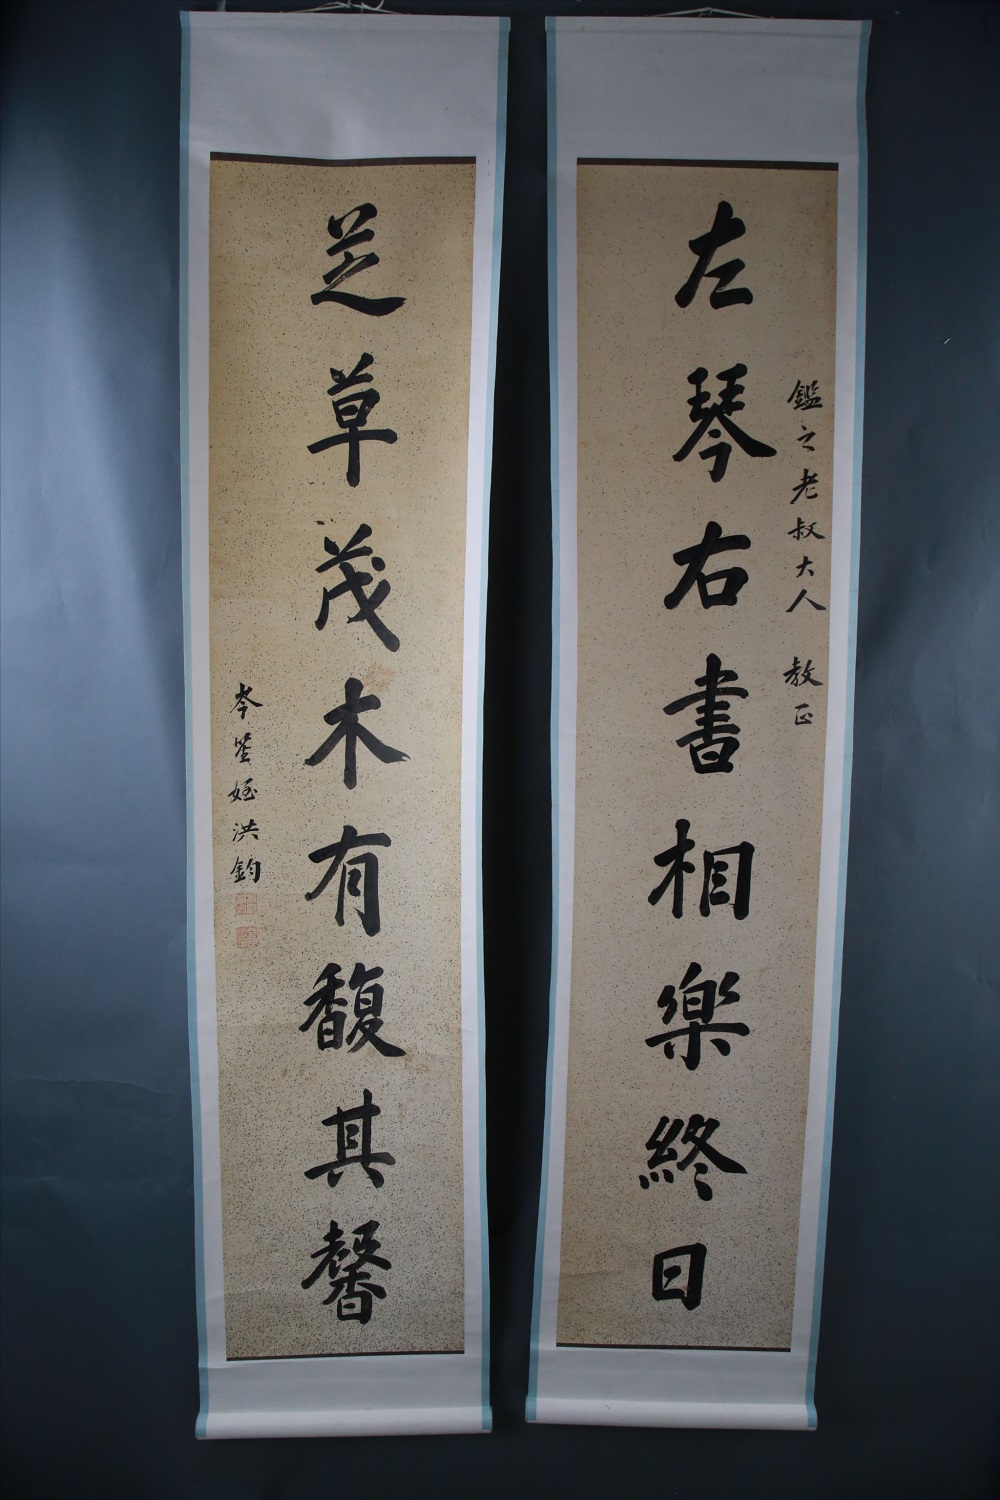 鑑之老叔大人 教正
左琴右書相樂終日
芝草茂木有馥其馨
岑 姪洪鈞